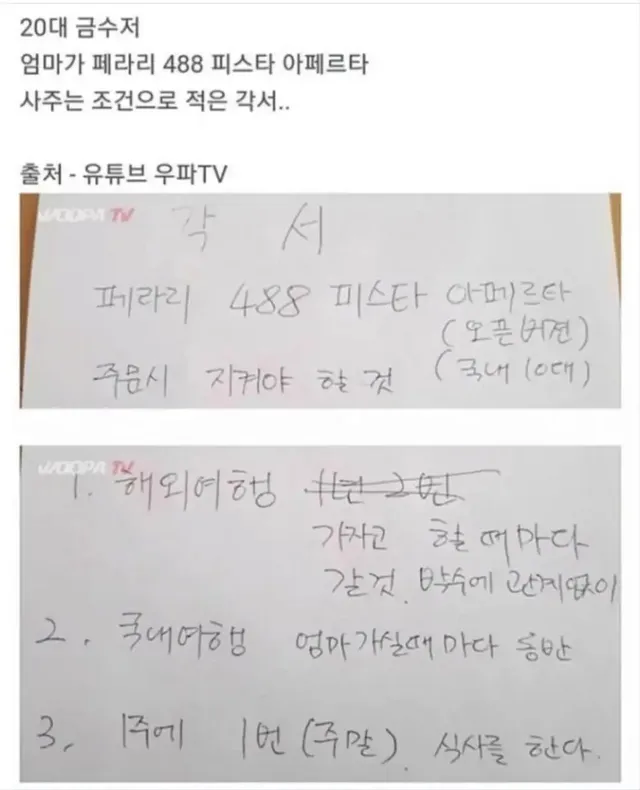 20대 금수저
엄마가 페라리 488 피스타 아페르타
사주는 조건으로 적은 각서..
출처 - 유튜브 우파TV
WOOPA TV
각 서
페라리 488 피스타 아페르타
(오픈버전)
주문시 지켜야 할 것 (국내 10대)
WOOPA TV
1. 해외여행 1년 2번
가자고 할때마다
갈것. 박수에 관계없이
2. 국내여행 엄마가실때마다 동반
3. 1주에 1번 (주말) 식사를 한다.